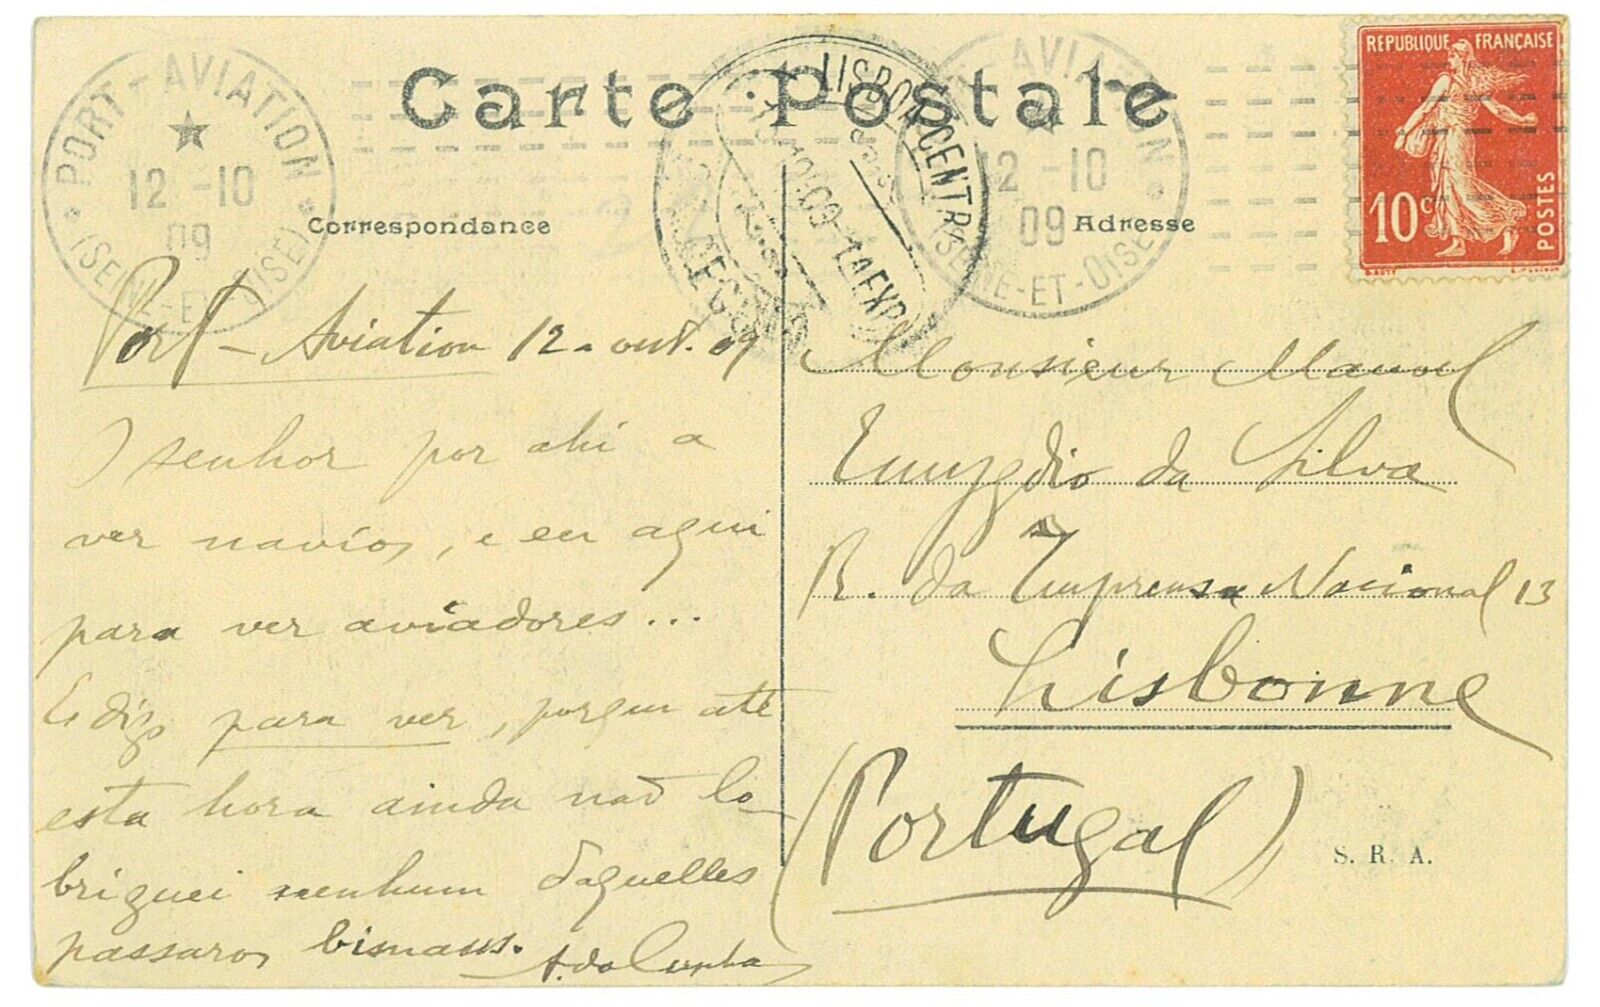 Carte Postale
Correspondance
Adresse
PORT-AVIATION
12-10
09
(SEINE-ET-OISE)
LISBOA CENTRAL
1A EXP
PORT-AVIATION
12-10
09
(SEINE-ET-OISE)
REPUBLIQUE FRANÇAISE
10c
POSTES
Port-Aviation 12-out. 09
O senhor por ahi a
ver navios, e eu aqui
para ver aviadores...
E digo para ver, porque até
esta hora ainda não lo-
briguei nenhum daquelles
passaros bisnaus.
A. da Cunha
Monsieur Manoel
Emygdio da Silva
R. da Imprensa Nacional 13
Lisbonne
(Portugal)
S. R. A.